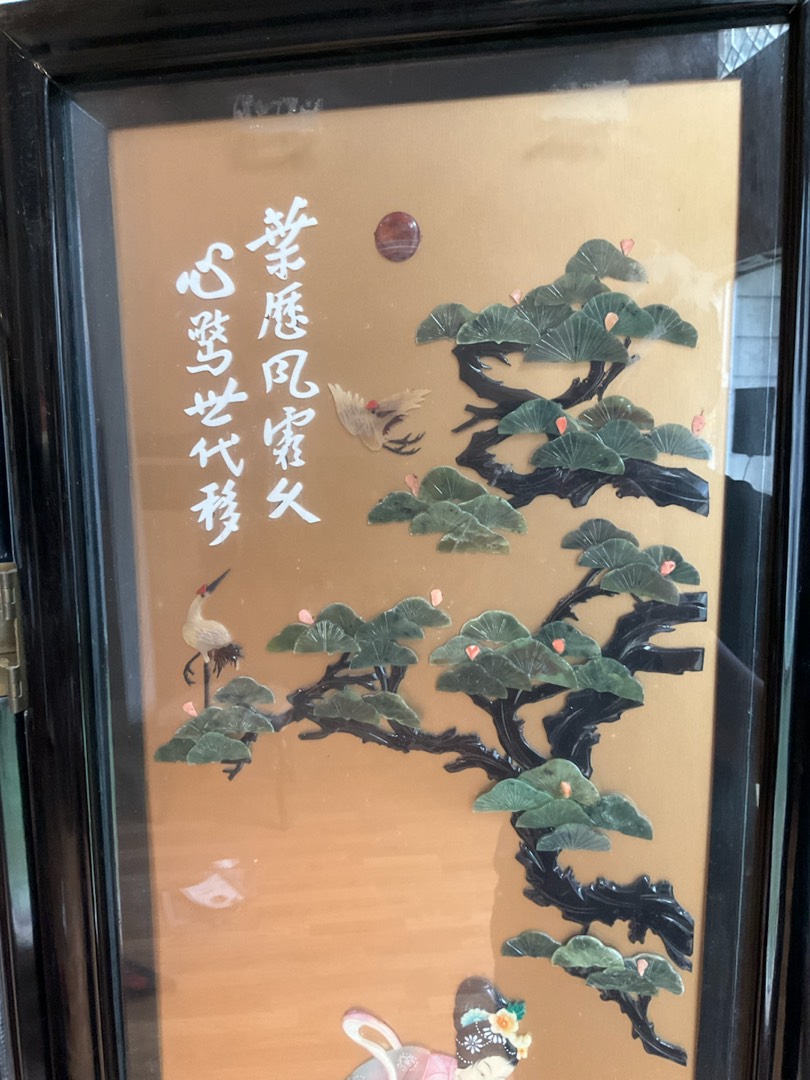 葉歷风霜久
心驚世代移